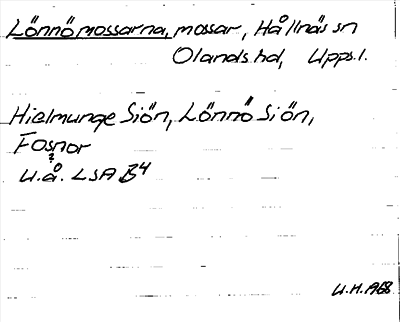 Lönnömossarna, mossar, Hållnäs sn
Olands hd, Upps.l.
Hielmunge Siön, Lönnö Siön,
Fosnor
?
U.å. LSA B4
U.H. 1968